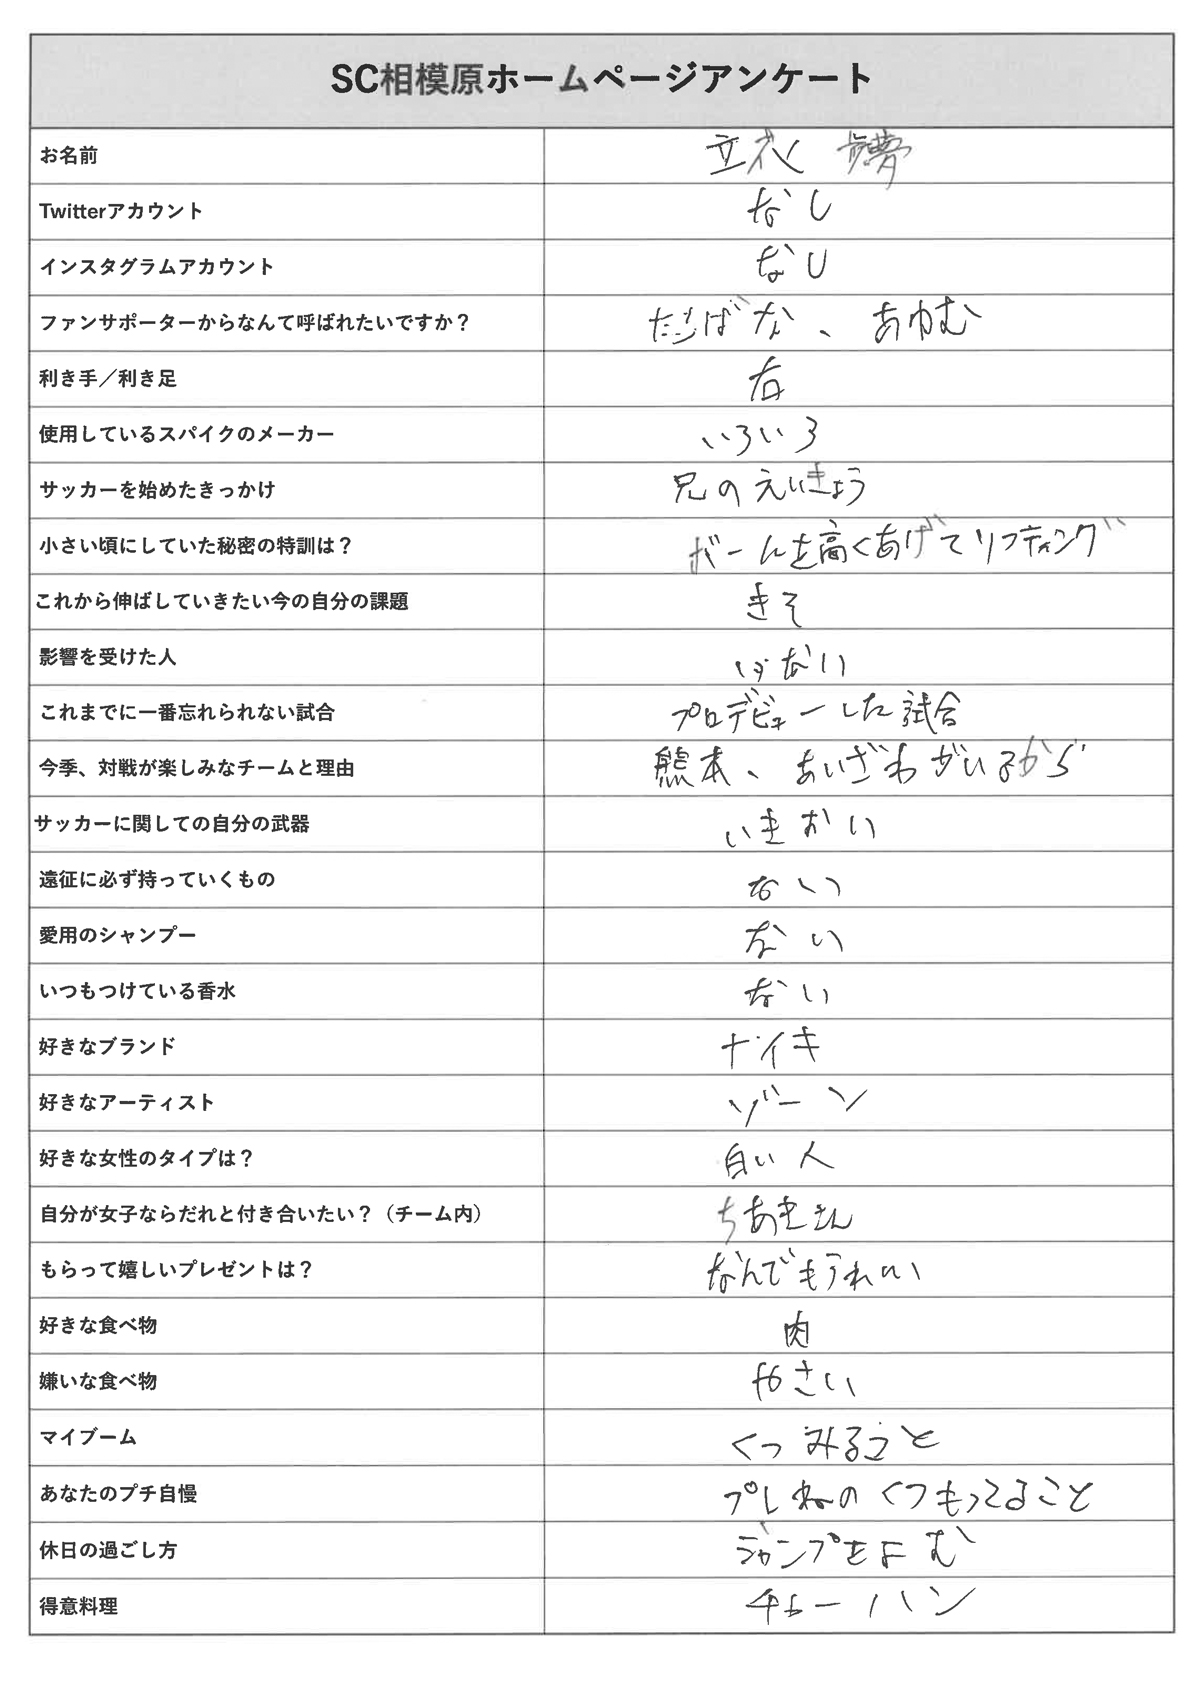 SC相模原ホームページアンケート
お名前 歩夢
Twitterアカウント なし
インスタグラムアカウント なし
ファンサポーターからなんて呼ばれたいですか？ たちばな、あゆむ
利き手／利き足 右
使用しているスパイクのメーカー いろいろ
サッカーを始めたきっかけ 兄のえいきょう
小さい頃にしていた秘密の特訓は？ ボールを高くあげてリフティング
これから伸ばしていきたい今の自分の課題 きそ
影響を受けた人 いない
これまでに一番忘れられない試合 プロデビューした試合
今季、対戦が楽しみなチームと理由 熊本、あいざわがいるから
サッカーに関しての自分の武器 いきおい
遠征に必ず持っていくもの ない
愛用のシャンプー ない
いつもつけている香水 ない
好きなブランド ナイキ
好きなアーティスト ゾーン
好きな女性のタイプは？ 白い人
自分が女子ならだれと付き合いたい？（チーム内） ちあきさん
もらって嬉しいプレゼントは？ なんでもうれしい
好きな食べ物 肉
嫌いな食べ物 やさい
マイブーム くつみること
あなたのプチ自慢 プレねのくつもってること
休日の過ごし方 ジャンプをよむ
得意料理 チャーハン